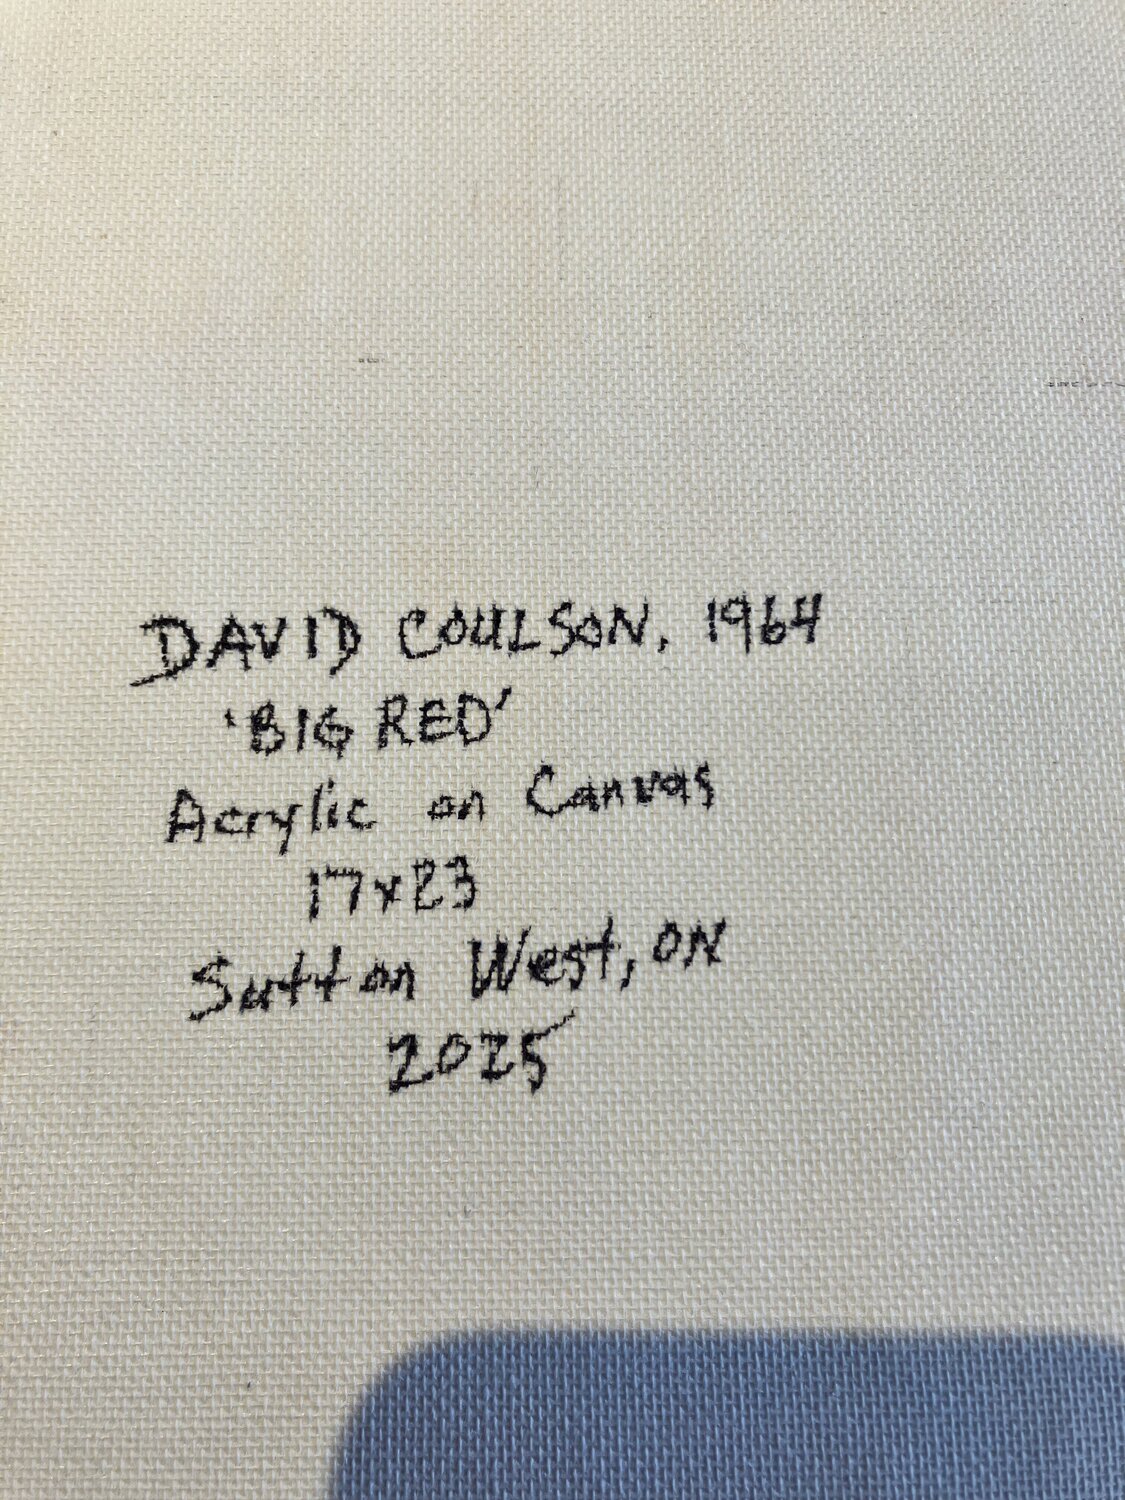 DAVID COULSON, 1964
'BIG RED'
Acrylic on Canvas
17x23
Sutton West, ON
2025